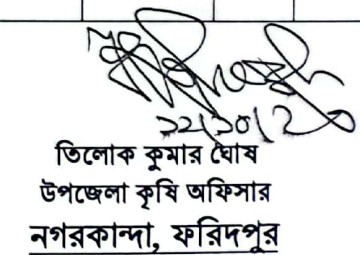 তিলোক কুমার ঘোষ
উপজেলা কৃষি অফিসার
নগরকান্দা, ফরিদপুর